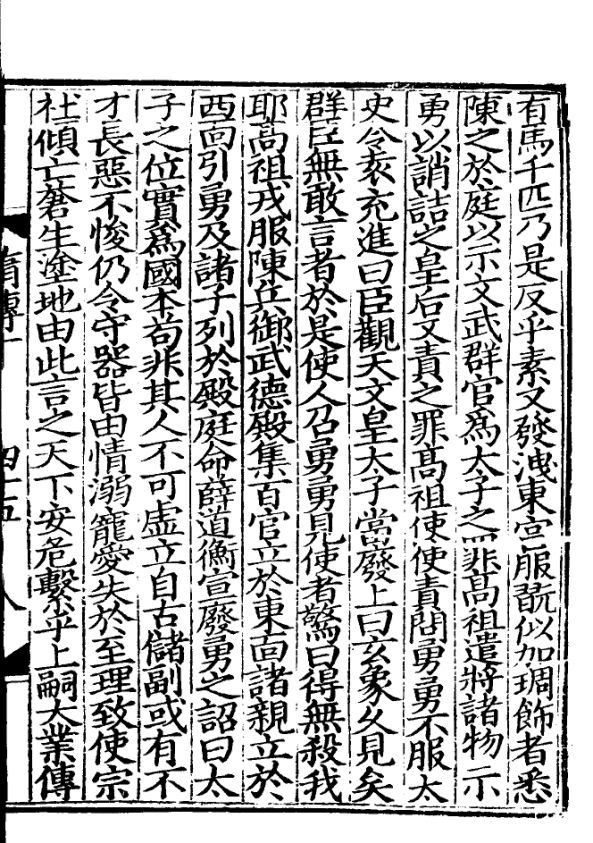 有馬千匹乃是反乎素又發洩東宮服翫似加琱飾者悉
陳之於庭以示文武群官爲太子之罪高祖遣將諸物示
勇以誚詰之皇后又責之罪高祖使使責問勇勇不服太
史令袁充進曰臣觀天文皇太子當廢上曰玄象久見矣
群臣無敢言者於是使人召勇勇見使者驚曰得無殺我
耶高祖戎服陳兵御武德殿集百官立於東面諸親立於
西面引勇及諸子列於殿庭命薛道衡宣廢勇之詔曰太
子之位實爲國本苟非其人不可虛立自古儲副或有不
才長惡不悛仍令守器皆由情溺寵愛失於至理致使宗
社傾亡蒼生塗地由此言之天下安危繫乎上嗣大業傳
隋傳一 四十五